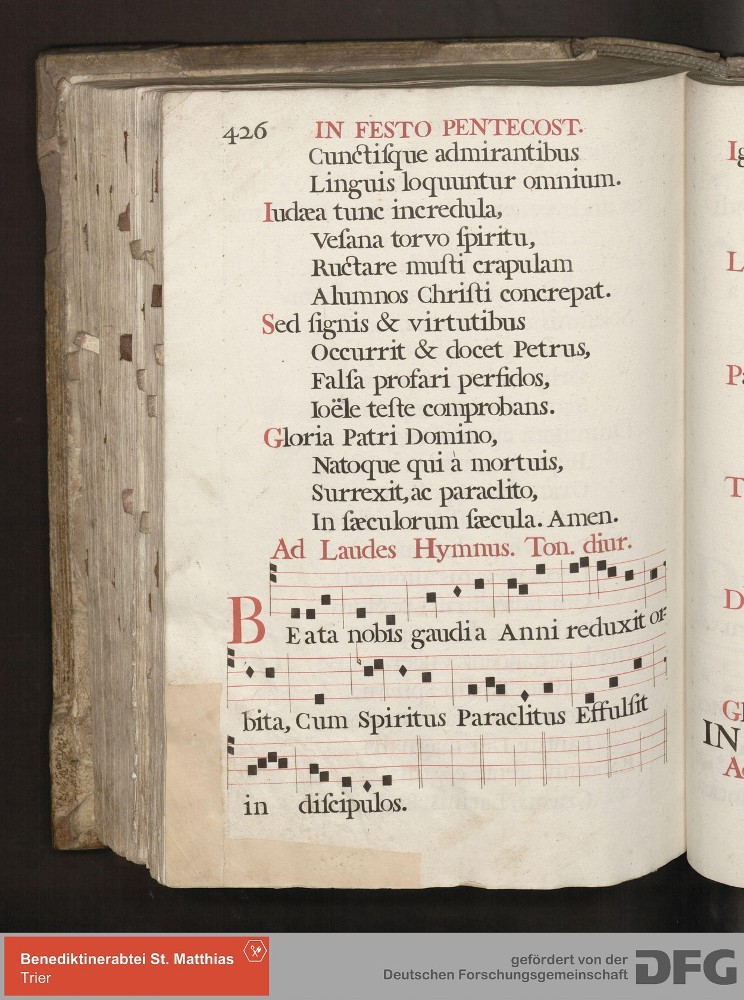 426 IN FESTO PENTECOST.
Cunctiſque admirantibus
Linguis loquuntur omnium.
Iudæa tunc incredula,
Veſana torvo ſpiritu,
Ructare muſti crapulam
Alumnos Chriſti concrepat.
Sed ſignis & virtutibus
Occurrit & docet Petrus,
Falſa profari perfidos,
Ioële teſte comprobans.
Gloria Patri Domino,
Natoque qui à mortuis,
Surrexit, ac paraclito,
In ſæculorum ſæcula. Amen.
Ad Laudes Hymnus. Ton. diur.
BEata nobis gaudia Anni reduxit or-
bita, Cum Spiritus Paraclitus Effulſit
in diſcipulos.
Ig
L
Pa
T
D
Gl
IN
Ad
Benediktinerabtei St. Matthias
Trier
gefördert von der
Deutschen Forschungsgemeinschaft
DFG